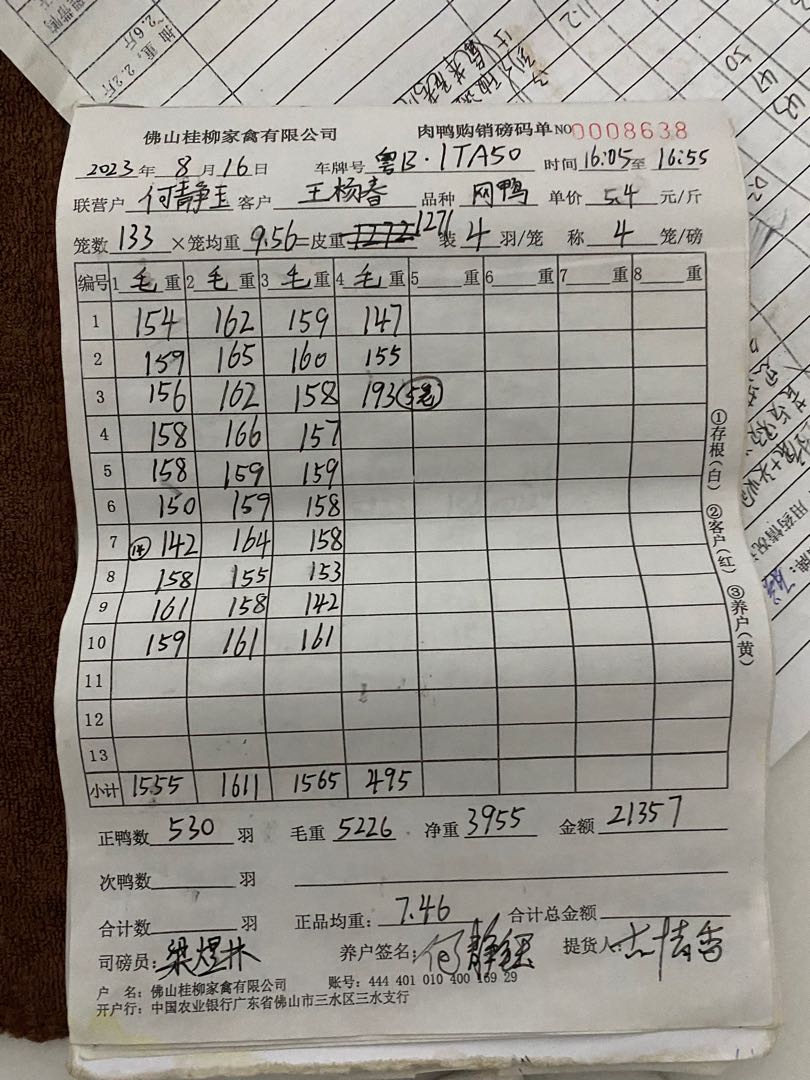 佛山桂柳家禽有限公司 肉鸭购销磅码单 NO 0008638
2023年 8月16日 车牌号 粤B·1TA50 时间 16:05至 16:55
联营户 何静玉 客户 王杨春 品种 网鸭 单价 5.4 元/斤
笼数 133 ×笼均重 9.56=皮重 1272 1271 装 4 羽/笼 称 4 笼/磅
编号 1 毛 重 2 毛 重 3 毛 重 4 毛 重 5 重 6 重 7 重 8 重
1 154 162 159 147
2 159 165 160 155
3 156 162 158 193 5笼
4 158 166 157
5 158 159 159
6 150 159 158
7 142 164 158
8 158 155 153
9 161 158 142
10 159 161 161
11
12
13
小计 1555 1611 1565 495
①存根(白) ②客户(红) ③养户(黄)
正鸭数 530 羽 毛重 5226 净重 3955 金额 21357
次鸭数 羽
合计数 羽 正品均重: 7.46 合计总金额
司磅员: 梁煜林 养户签名: 何静 提货人:
户 名: 佛山桂柳家禽有限公司 账号: 444 401 010 400 169 29
开户行: 中国农业银行广东省佛山市三水区三水支行
~2.6斤
抽重: 2.2斤
50
47
43
用药情况